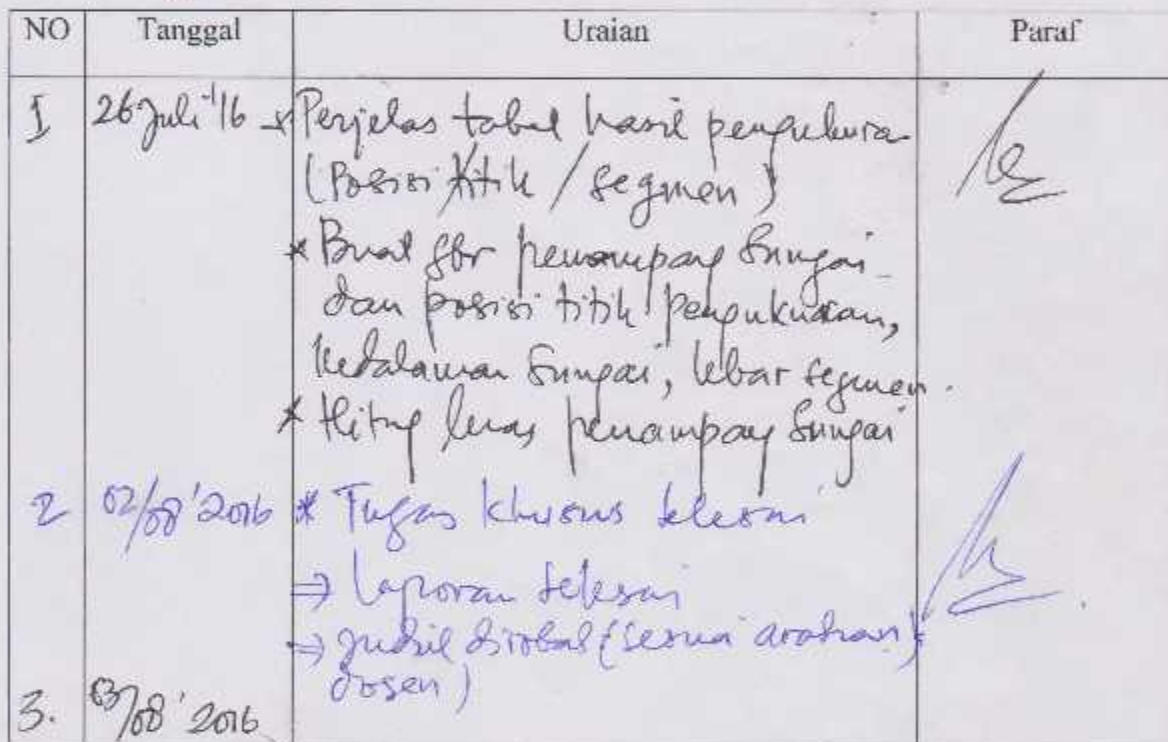 NO Tanggal Uraian Paraf
1 26 Juli '16 * Perjelas tabel hasil pengukura
(Posisi titik / segmen)
* Buat gbr penampang sungai
dan posisi titik pengukuran,
kedalaman sungai, lebar segmen.
* Hitung luas penampang sungai
2 02/08 '2016 * Tugas khusus selesai
⇒ laporan selesai
⇒ judul dirobah (sesuai arahan
dosen)
3. 03/08 '2016